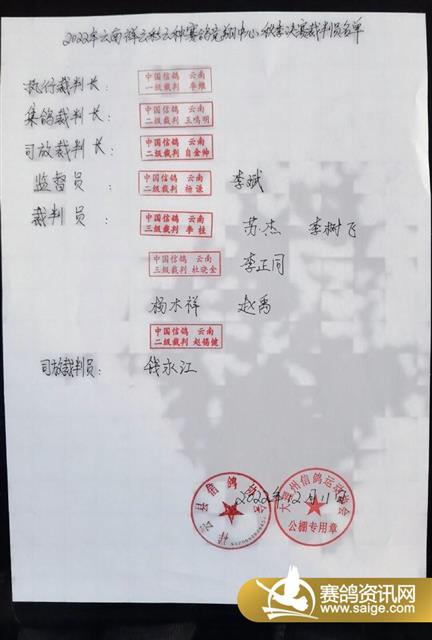 2022年云南祥云彩云种赛鸽竞翔中心秋季决赛裁判员名单
执行裁判长：
中国信鸽 云南
一级裁判 李维
集鸽裁判长：
中国信鸽 云南
二级裁判 王鸣明
司放裁判长：
中国信鸽 云南
二级裁判 自金帅
监督员：
中国信鸽 云南
二级裁判 杨谦
李斌
裁判员：
中国信鸽 云南
三级裁判 李桂
苏杰 李树飞
中国信鸽 云南
三级裁判 杜晓全
李正同
杨木祥 赵禹
中国信鸽 云南
二级裁判 赵锡健
司放裁判员：
钱永江
2022年12月11日
县信鸽协会
大理州信鸽运动协会
公棚专用章
赛鸽资讯网
www.saige.com